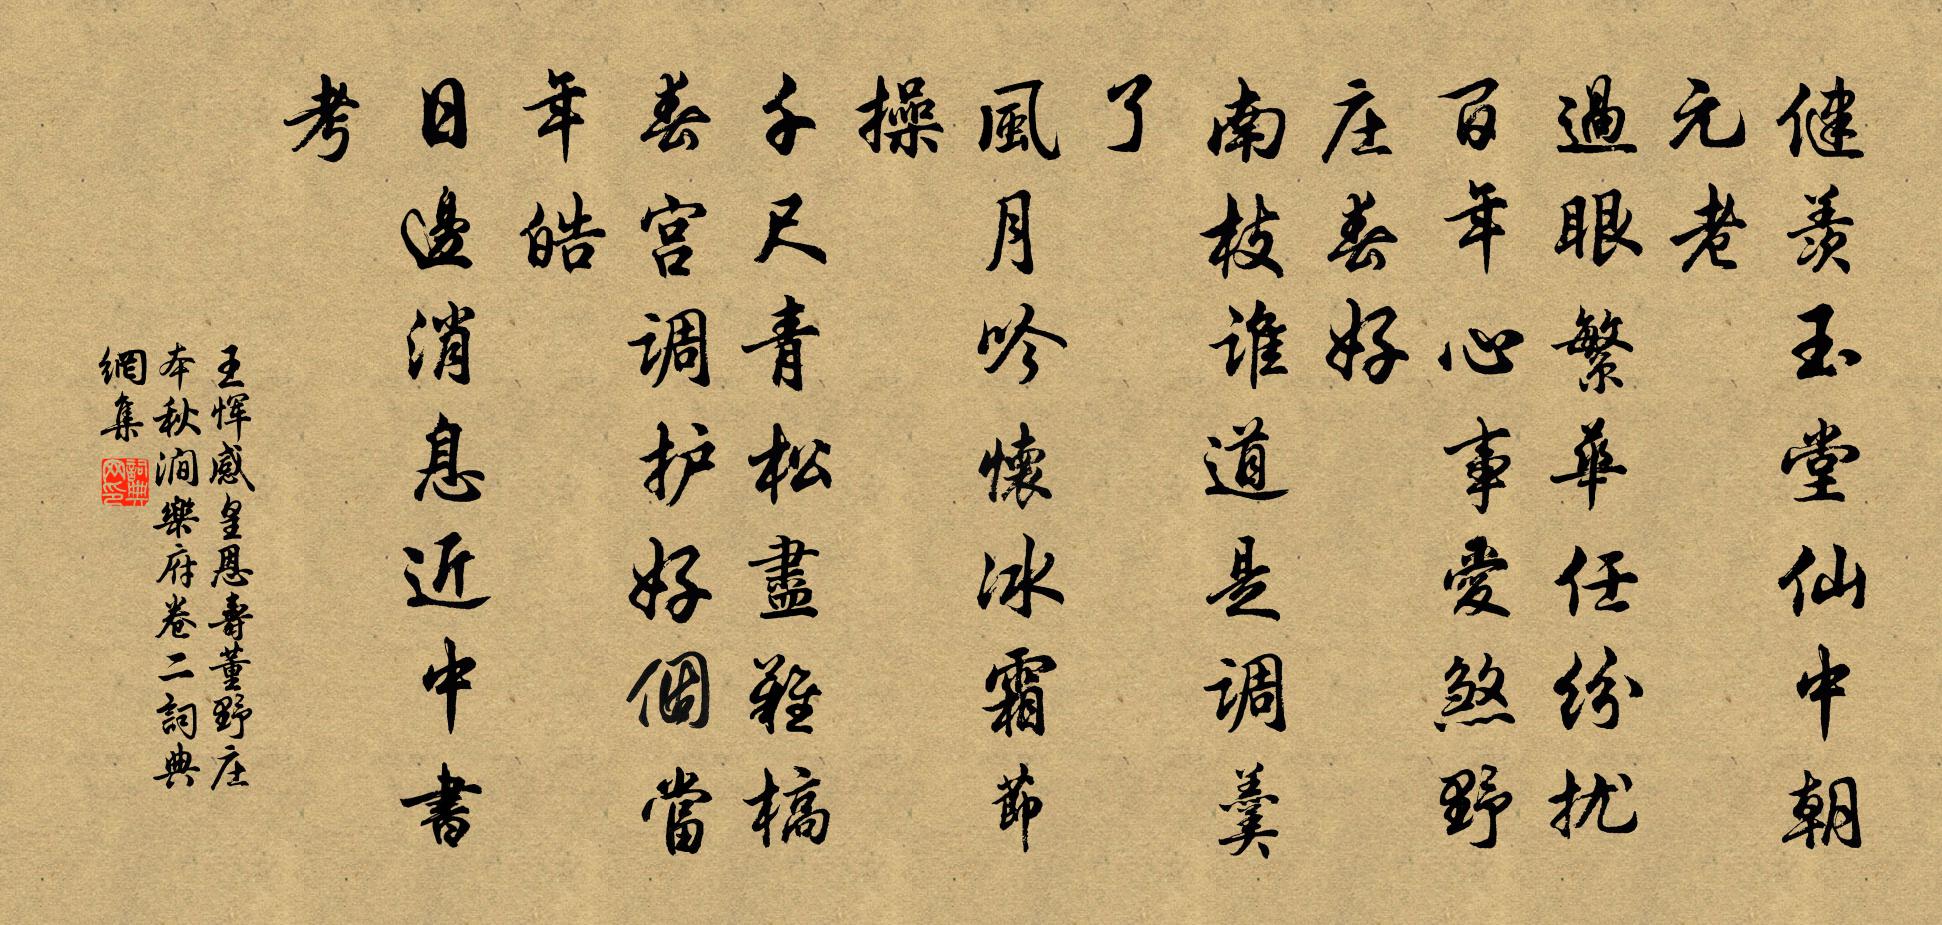 健羨玉堂仙中朝
元老
過眼繁華任紛扰
百年心事愛煞野
庄春好
南枝谁道是调羹
了
風月吟懷冰霜節
操
千尺青松盡難槁
春宫调护好個當
年皓
日邊消息近中書
考
王惲感皇恩壽董野庄
本秋澗樂府卷二詞典
網集
詞典网印